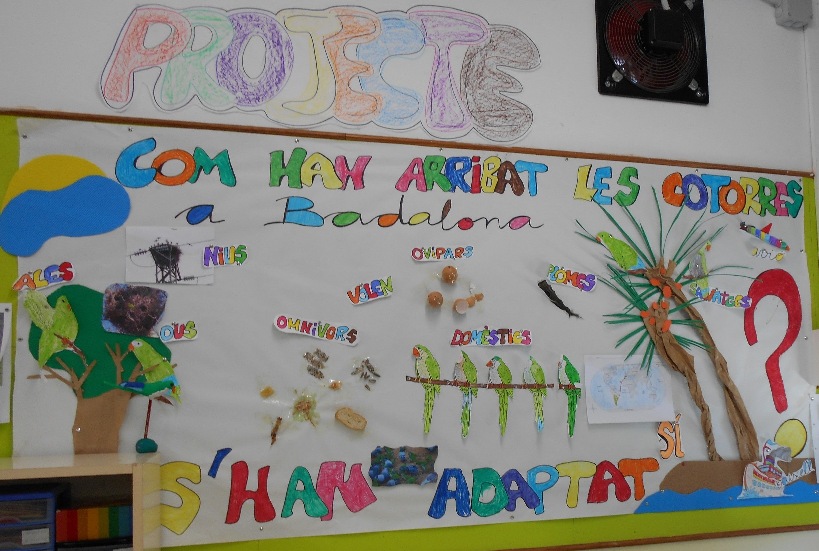 PROJECTE
COM HAN ARRIBAT LES COTORRES
a Badalona
ALES
NIUS
OUS
VOLEN
OVÍPARS
PLOMES
SALVATGES
OMNIVORS
DOMÈSTICS
SÍ
S'HAN ADAPTAT
?